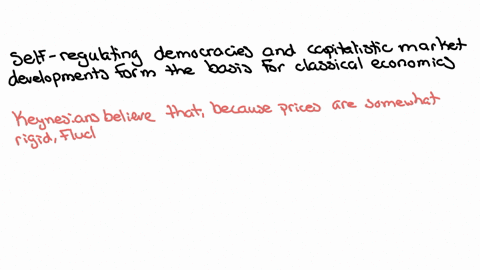 Self-regulating democracies and capitalistic market
developments form the basis for classical economics
Keynesians believe that, because prices are somewhat
rigid, fluc